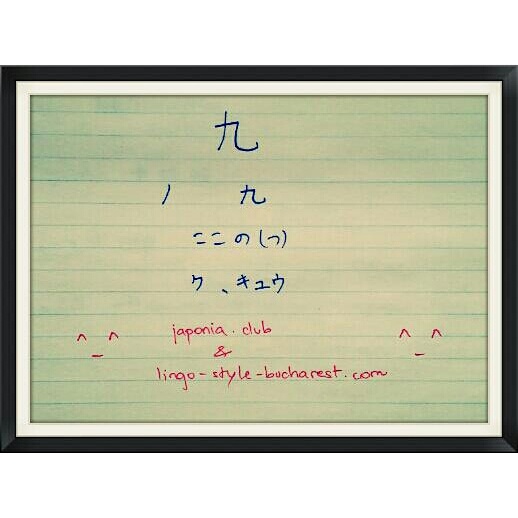 九
ノ 九
ここの(つ)
ク、キュウ
^ ^ japonia.club ^ ^
_ & _
lingo-style-bucharest.com